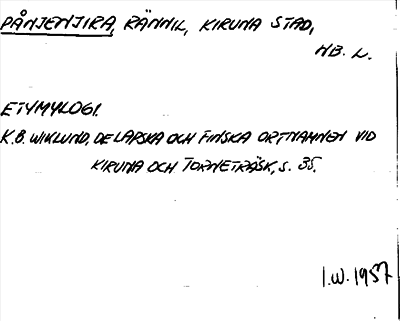 PÅNJENJIRA, RÄNNIL, KIRUNA STAD,
NB. L.
ETYMYLOGI.
K.B. WIKLUND, DE LAPSKA OCH FINSKA ORTNAMNEN VID
KIRUNA OCH TORNETRÄSK, S. 35.
I.W. 1957